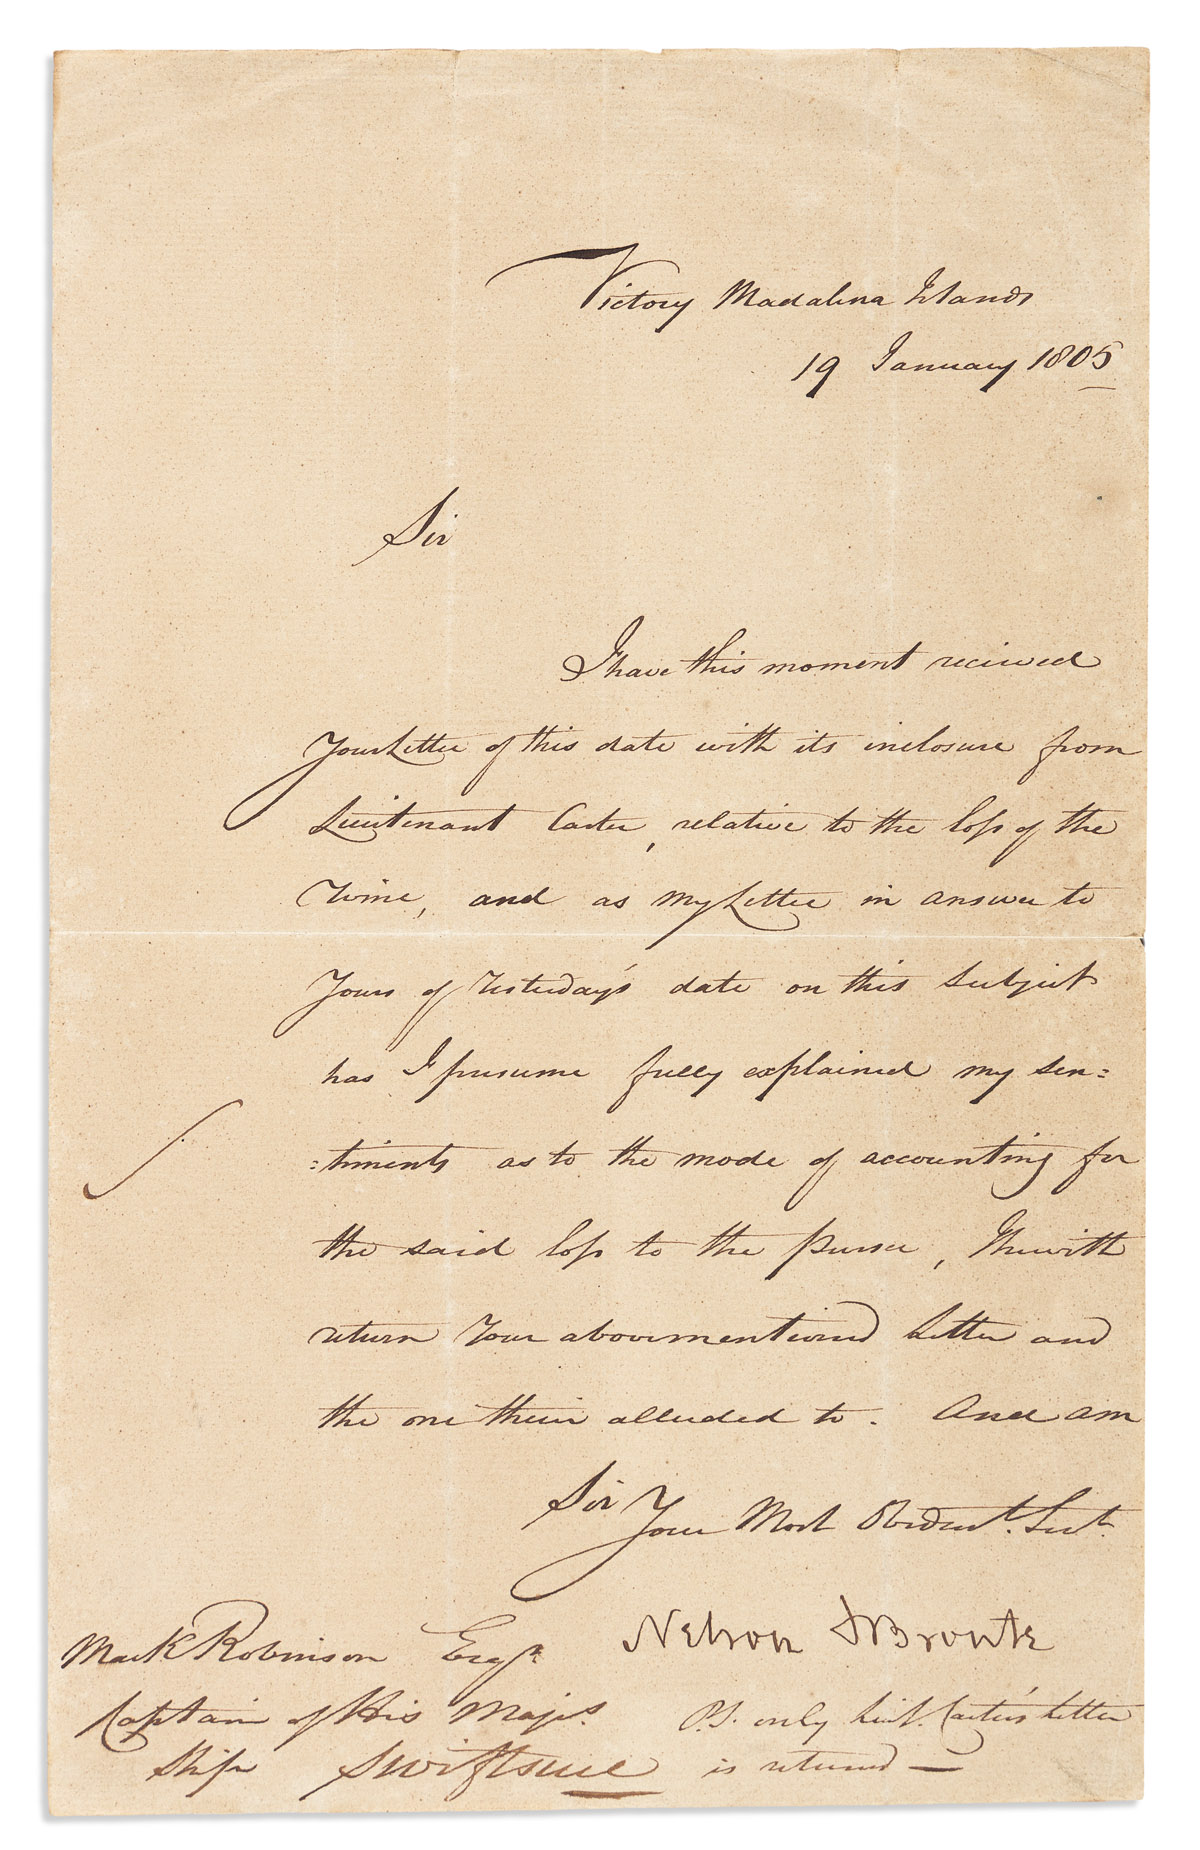 Victory Madalena Islands
19 January 1805
Sir
I have this moment received
Your Letter of this date with its inclosure from
Lieutenant Carter, relative to the loss of the
Wine, and as my Letter in answer to
Yours of Yesterday's date on this subject
has I presume fully explained my sen=
=timents as to the mode of accounting for
the said loss to the Purser, I herewith
return Your abovementioned Letter and
the one therein alluded to. And am
Sir Your Most Obedient. Servt.
Nelson & Bronte
Mark Robinson Esqr.
Captain of His Majs.
Ship Swiftsure
P.S. only Lieut. Carter's Letter
is returned —